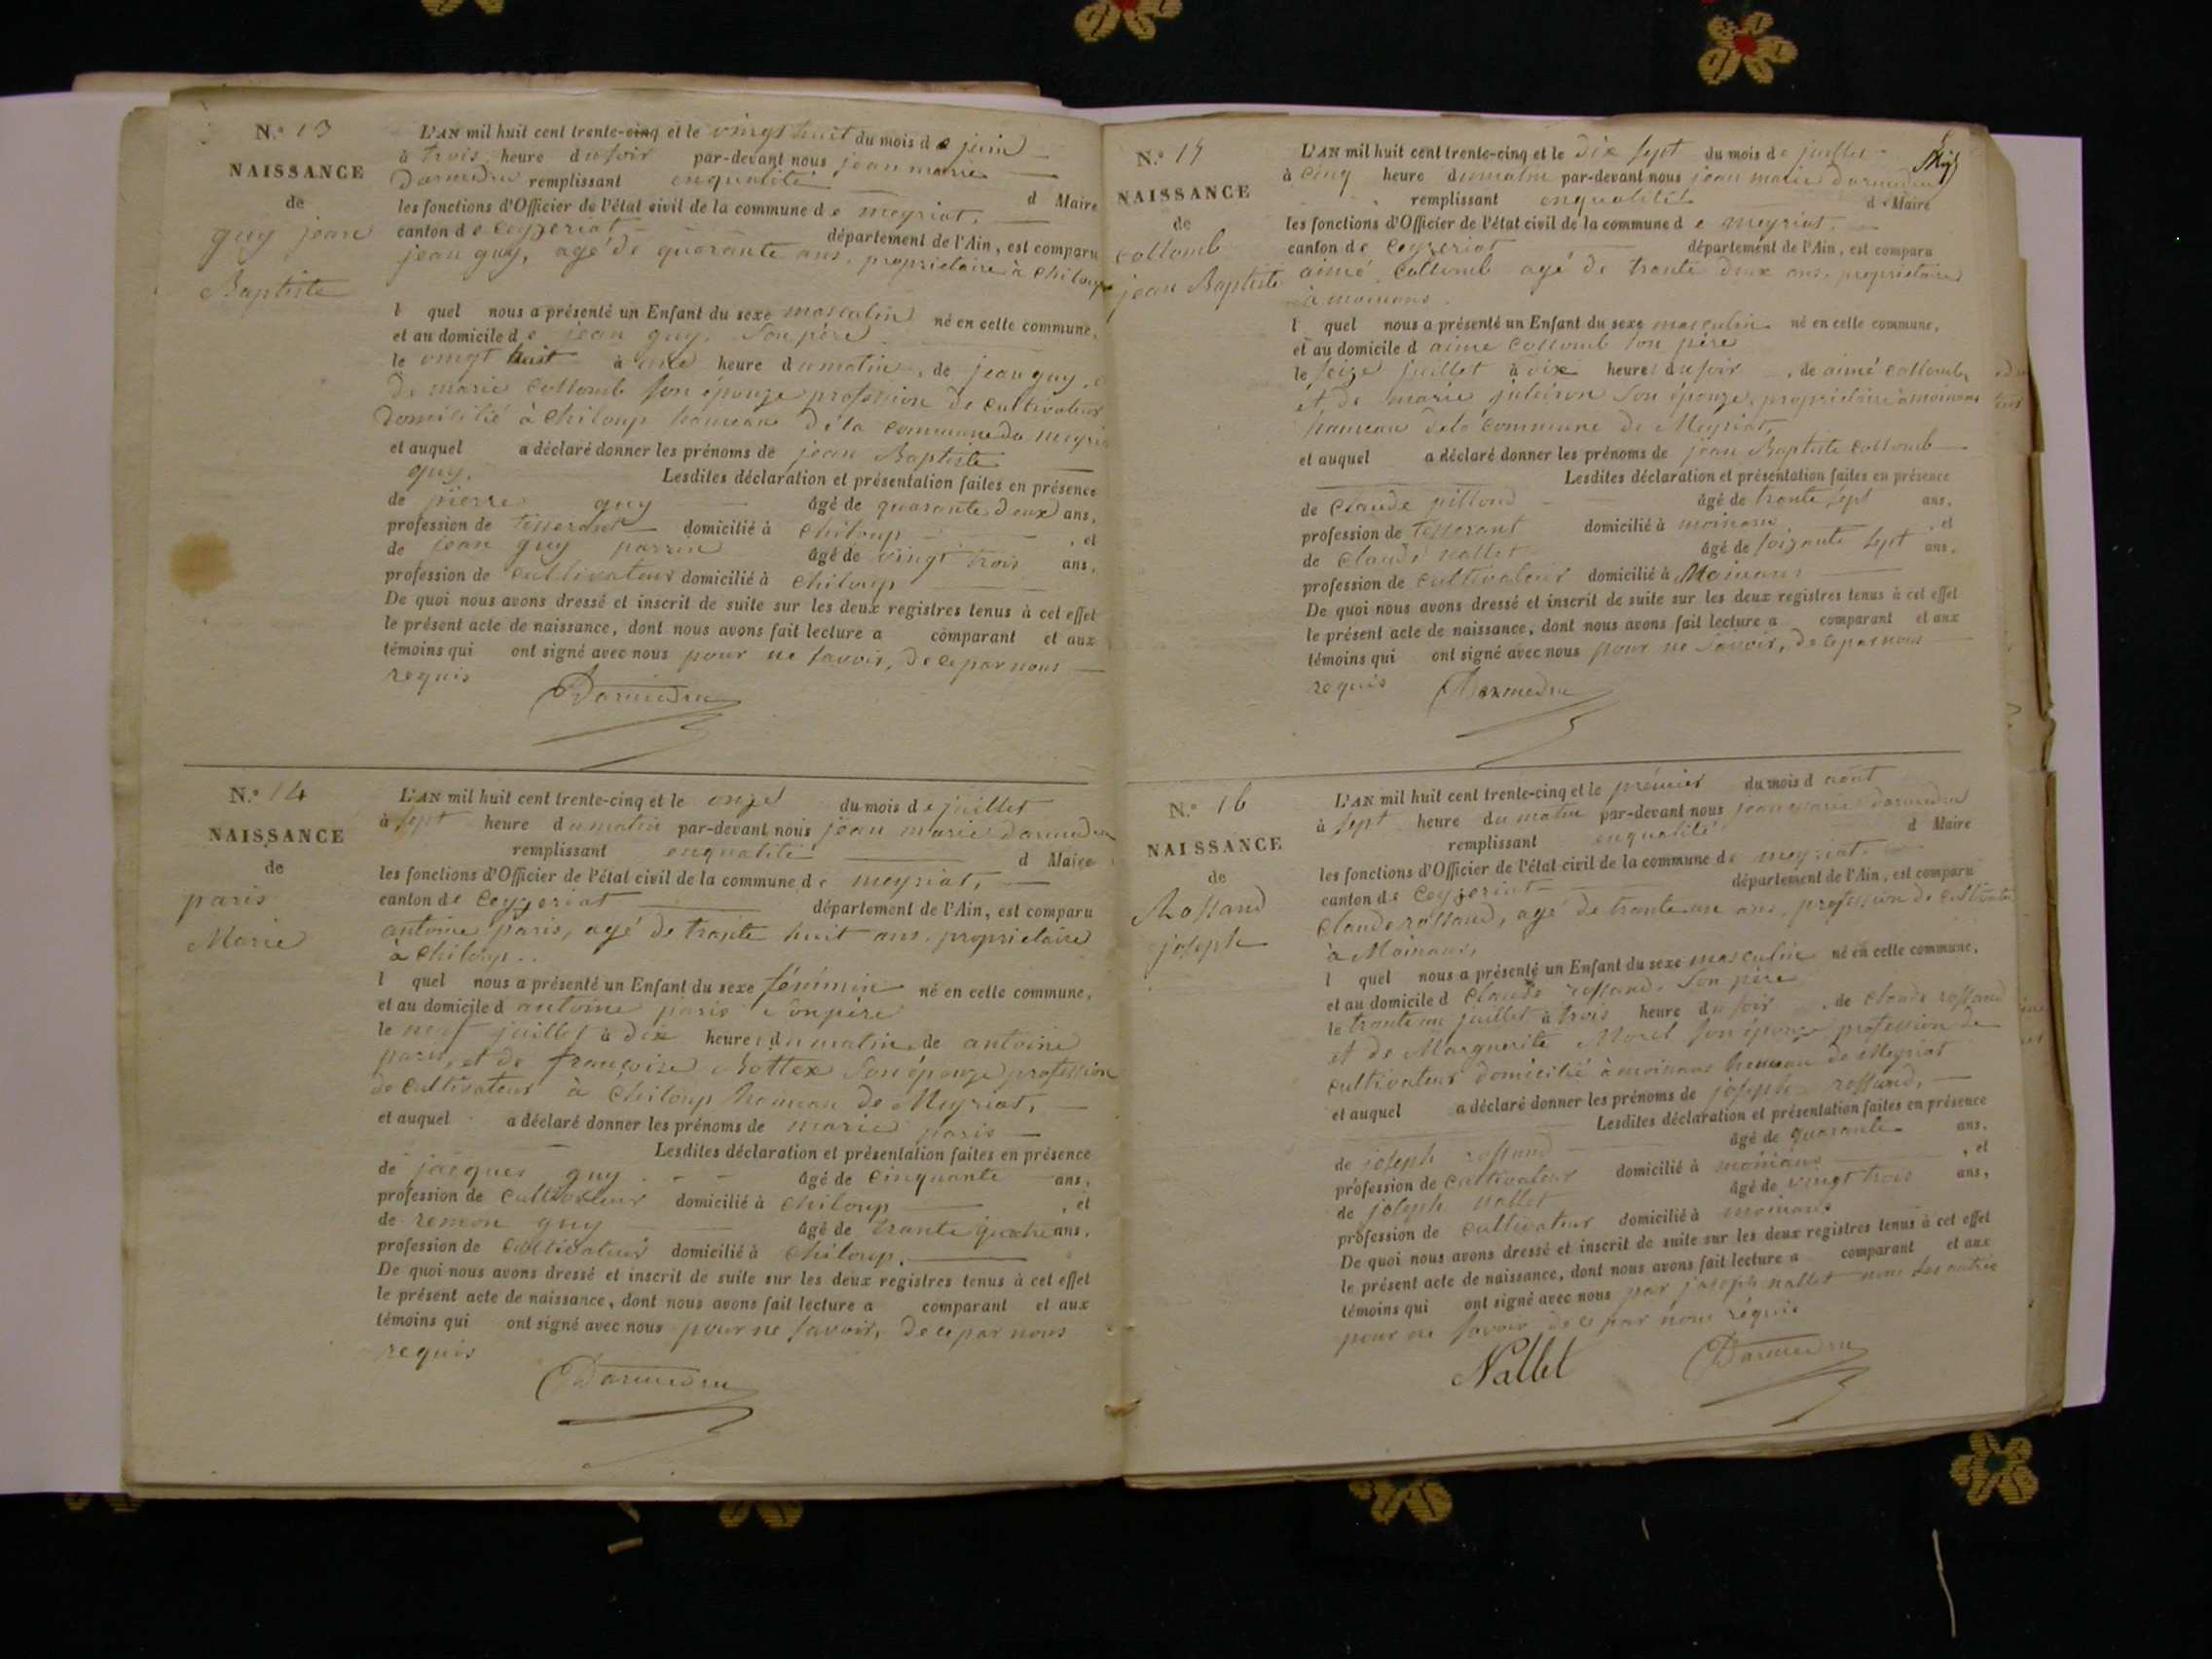 N.o 13
NAISSANCE
de
guy jean
Baptiste
L'AN mil huit cent trente-cinq et le vingt huit du mois de juin
à trois heure du soir par-devant nous jean marie
Darmedru remplissant enqualité d Maire
les fonctions d'Officier de l'état civil de la commune de meyriat.
canton de Ceyzeriat département de l'Ain, est comparu
jean guy, agé de quarante ans, proprietaire à Chiloup
l quel nous a présenté un Enfant du sexe masculin né en cette commune,
et au domicile de jean guy, Son père
le vingt huit à une heure du matin, de jean guy, e
De marie Collomb Son épouze profession De Cultivateur
Domicilié à Chiloup hameau De la Commune De meyria
et auquel a déclaré donner les prénoms de jean Baptiste
guy. Lesdites déclaration et présentation faites en présence
de pierre guy âgé de quarante Deux ans,
profession de tisserant domicilié à Chiloup , et
de jean guy perrin âgé de vingt trois ans,
profession de Cultivateur domicilié à Chiloup
De quoi nous avons dressé et inscrit de suite sur les deux registres tenus à cet effet
le présent acte de naissance, dont nous avons fait lecture a comparant et aux
témoins qui ont signé avec nous pour ne Savoir, De ce par nous
requis
Darmedru
N.o 14
NAISSANCE
de
paris
Marie
L'AN mil huit cent trente-cinq et le onze du mois de juillet
à Sept heure du matin par-devant nous jean marie Darmedru
remplissant enqualité d Maire
les fonctions d'Officier de l'état civil de la commune de meyriat,
canton de Ceyzeriat département de l'Ain, est comparu
antoine paris, agé De trante huit ans, proprietaire
à Chiloup.
l quel nous a présenté un Enfant du sexe féminin né en cette commune,
et au domicile d antoine paris Son père
le neuf juillet à Dix heures du matin, de antoine
paris, et De françoise Bottex Son épouze profession
De Cultivateur à Chiloup hameau De Meyriat,
et auquel a déclaré donner les prénoms de marie paris
Lesdites déclaration et présentation faites en présence
de jacques guy âgé de Cinquante ans,
profession de Cultivateur domicilié à Chiloup , et
de remon guy âgé de trante quatre ans,
profession de Cultivateur domicilié à Chiloup.
De quoi nous avons dressé et inscrit de suite sur les deux registres tenus à cet effet
le présent acte de naissance, dont nous avons fait lecture a comparant et aux
témoins qui ont signé avec nous pour ne Savoir, De ce par nous
requis
Darmedru
N.o 15
NAISSANCE
de
Collomb
jean Baptiste
L'AN mil huit cent trente-cinq et le Dix Sept du mois de juillet
à Cinq heure du matin par-devant nous jean marie Darmedru
remplissant enqualité d Maire
les fonctions d'Officier de l'état civil de la commune de meyriat.
canton de Ceyzeriat département de l'Ain, est comparu
aimé Collomb agé De trante Deux ans, proprietaire
à moinans.
l quel nous a présenté un Enfant du sexe masculin né en cette commune,
et au domicile d aimé Collomb Son père
le Seize juillet à Dix heures du soir, de aimé Collomb,
et De marie Son épouze, proprietaire à moinans
hameau De la Commune De Meyriat,
et auquel a déclaré donner les prénoms de jean Baptiste Collomb
Lesdites déclaration et présentation faites en présence
de Claude âgé de trante Sept ans,
profession de tisserant domicilié à moinans , et
de Claude nallet âgé de Soizante Sept ans,
profession de Cultivateur domicilié à Moinans
De quoi nous avons dressé et inscrit de suite sur les deux registres tenus à cet effet
le présent acte de naissance, dont nous avons fait lecture a comparant et aux
témoins qui ont signé avec nous pour ne Savoir, De ce par nous
requis
Darmedru
N.o 16
NAISSANCE
de
Rossand
joseph
L'AN mil huit cent trente-cinq et le prémier du mois d aout
à Sept heure du matin par-devant nous jean marie Darmedru
remplissant enqualité d Maire
les fonctions d'Officier de l'état civil de la commune de meyriat.
canton de Ceyzeriat département de l'Ain, est comparu
Claude rossand, agé De trante un ans, profession De Cultivateu
à Moinans,
l quel nous a présenté un Enfant du sexe masculin né en cette commune,
et au domicile d Claude rossand, Son père
le trante un juillet à trois heure du soir, de Claude rossand
et De Marguerite Morel Son épouze profession De
Cultivateur Domicilié à moinans hameau De Meyriat
et auquel a déclaré donner les prénoms de joseph rossand,
Lesdites déclaration et présentation faites en présence
de joseph rossand âgé de quarante ans,
profession de Cultivateur domicilié à moinans , et
de joseph nallet âgé de vingt trois ans,
profession de Cultivateur domicilié à moinans
De quoi nous avons dressé et inscrit de suite sur les deux registres tenus à cet effet
le présent acte de naissance, dont nous avons fait lecture a comparant et aux
témoins qui ont signé avec nous par joseph nallet non Les autres
pour ne Savoir De ce par nous réquis
Nallet Darmedru